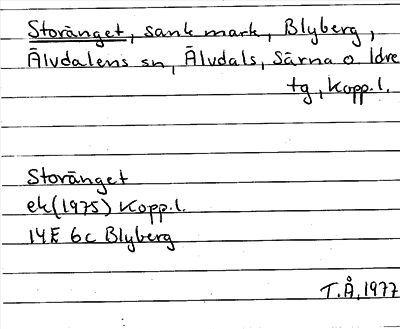 Storänget, sank mark, Blyberg,
Älvdalens sn, Älvdals, Särna o Idre
tg, Kopp.l.
Storänget
ek(1975) Kopp.l.
14E 6c Blyberg
T.Å, 1977